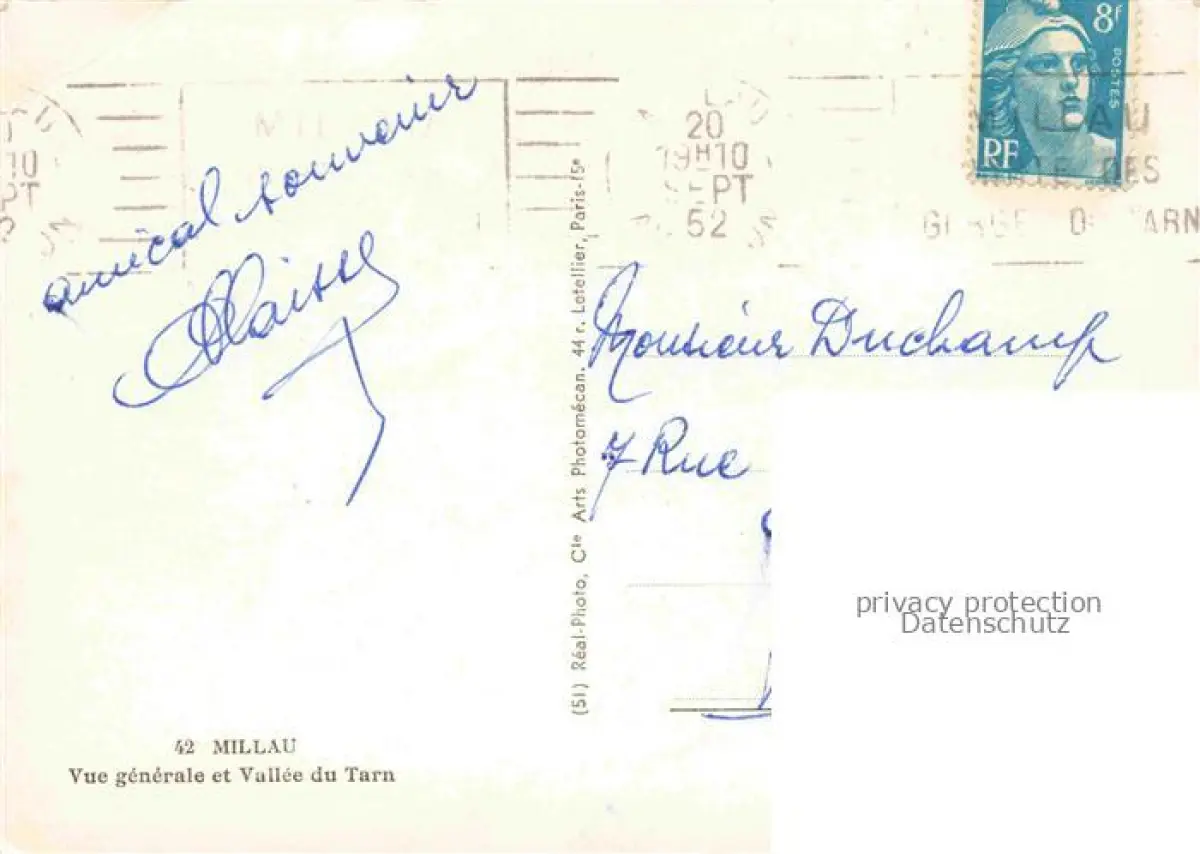 8f
POSTES
RF
20
19H10
SEPT
52
MILLAU
DES
GORGES DU TARN
amical souvenir
Monsieur Duchamp
7 Rue
(51) Réal-Photo, Cie Arts Photomécan. 44 r. Letellier, Paris-15e
privacy protection
Datenschutz
42 MILLAU
Vue générale et Vallée du Tarn